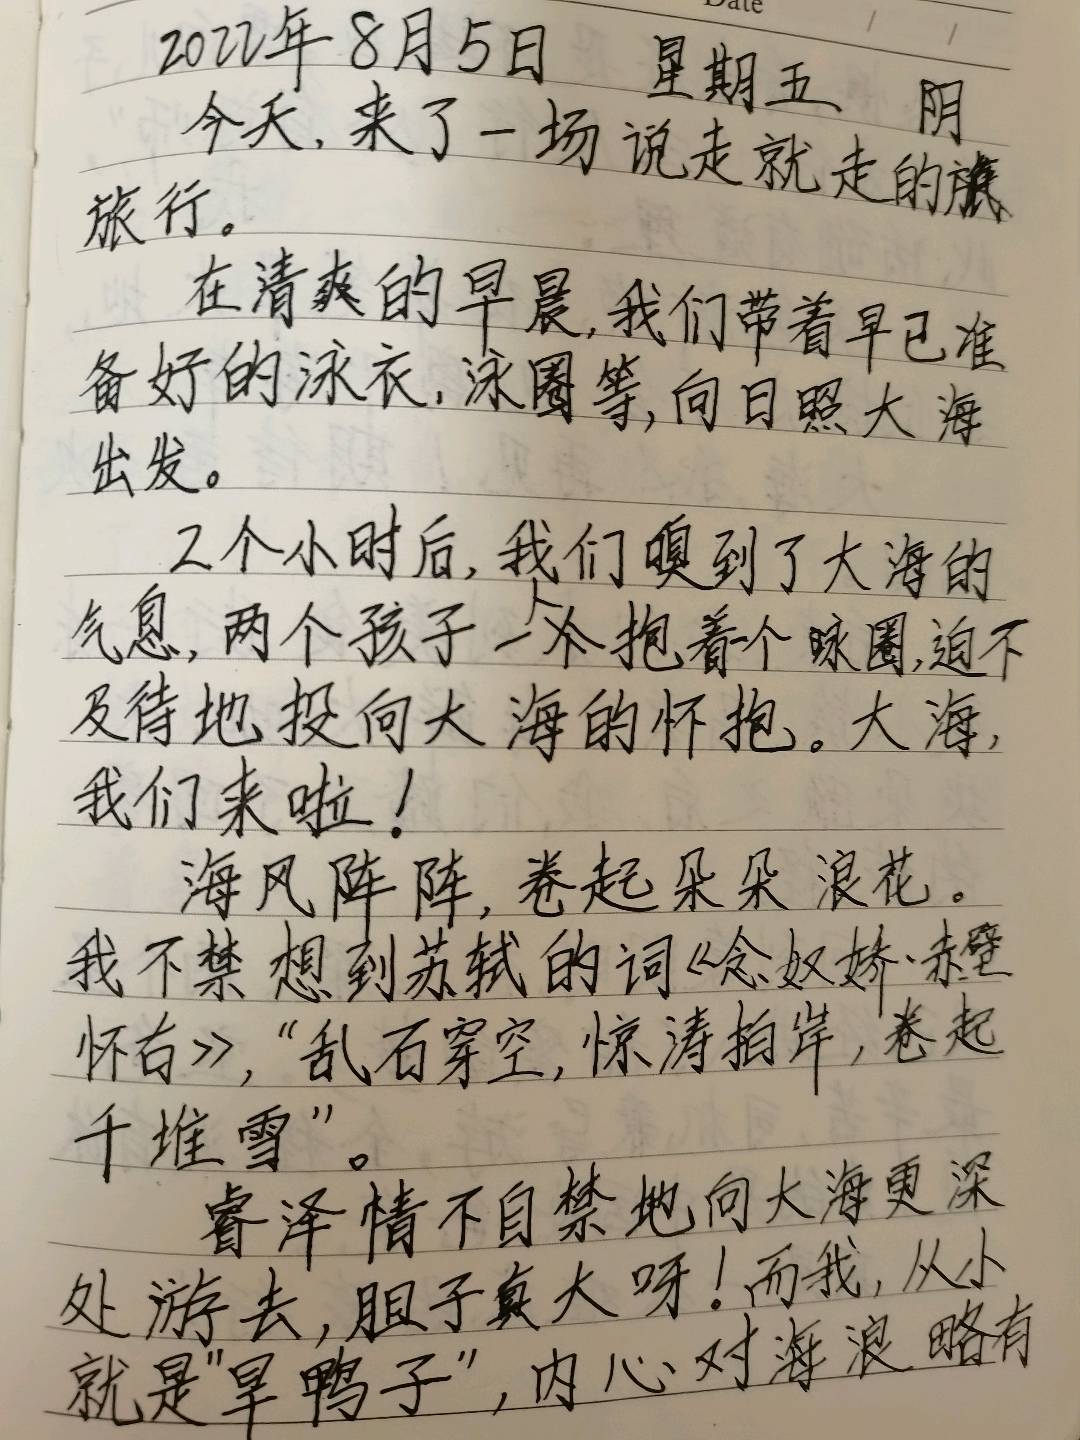 Date
2022年8月5日 星期五 阴
今天,来了一场说走就走的
旅行。
在清爽的早晨,我们带着早已准
备好的泳衣,泳圈等,向日照大海
出发。
2个小时后,我们嗅到了大海的
气息,两个孩子一人抱着一个泳圈,迫不
及待地投向大海的怀抱。大海,
我们来啦!
海风阵阵,卷起朵朵浪花。
我不禁想到苏轼的词《念奴娇·赤壁
怀古》,“乱石穿空,惊涛拍岸,卷起
千堆雪”。
睿泽情不自禁地向大海更深
处游去,胆子真大呀!而我,从小
就是"旱鸭子",内心对海浪略有